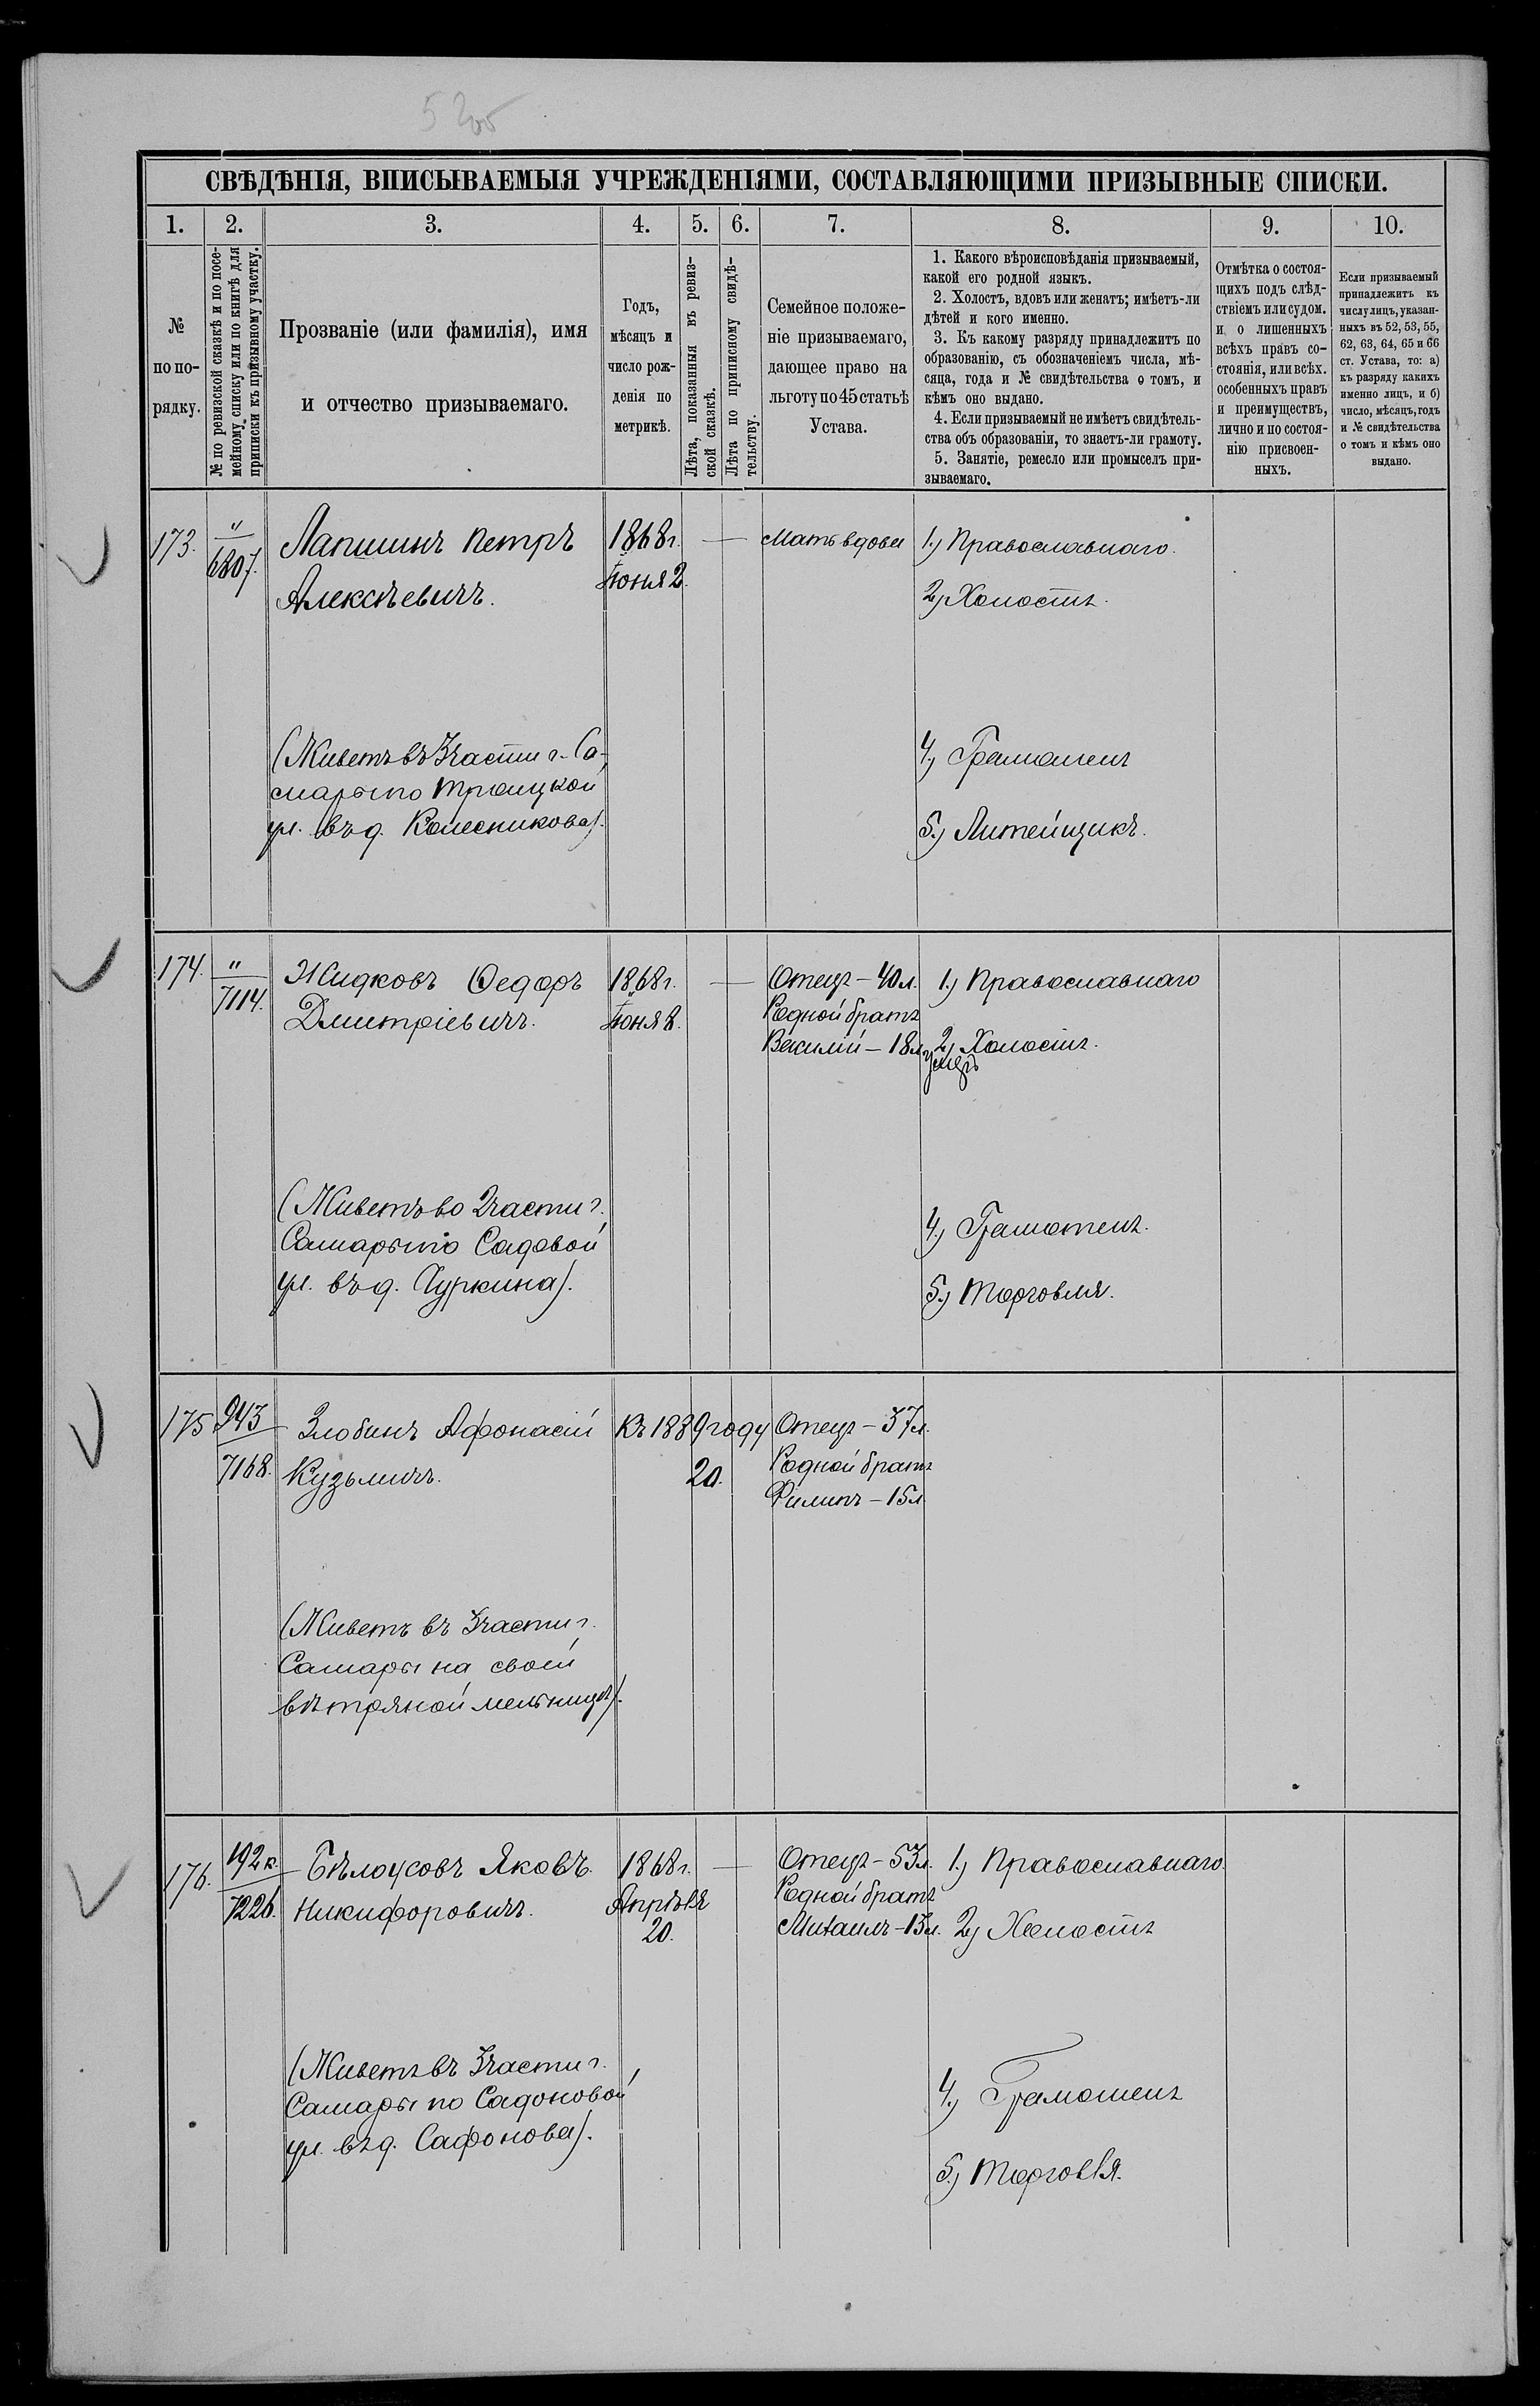 СВѢДѢНІЯ, ВПИСЫВАЕМЫЯ УЧРЕЖДЕНІЯМИ, СОСТАВЛЯЮЩИМИ ПРИЗЫВНЫЕ СПИСКИ.
1.
2.
3.
4.
5.
6.
7.
8.
9.
10.
№
по по-
рядку.
№ по ревизской сказкѣ и по посе-
мейному списку или по книгѣ для
приписки къ призывному участку.
Прозваніе (или фамилія), имя
и отчество призываемаго.
Годъ,
мѣсяцъ и
число рож-
денія по
метрикѣ.
Лѣта, показанныя въ ревиз-
ской сказкѣ.
Лѣта по приписному свидѣ-
тельству.
Семейное положе-
ніе призываемаго,
дающее право на
льготу по 45 статьѣ
Устава.
1. Какого вѣроисповѣданія призываемый,
какой его родной языкъ.
2. Холостъ, вдовъ или женатъ; имѣетъ-ли
дѣтей и кого именно.
3. Къ какому разряду принадлежитъ по
образованію, съ обозначеніемъ числа, мѣ-
сяца, года и № свидѣтельства о томъ, и
кѣмъ оно выдано.
4. Если призываемый не имѣетъ свидѣтель-
ства объ образованіи, то знаетъ-ли грамоту.
5. Занятіе, ремесло или промыселъ при-
зываемаго.
Отмѣтка о состоя-
щихъ подъ слѣд-
ствіемъ или судом.
и о лишенныхъ
всѣхъ правъ со-
стоянія, или всѣх.
особенныхъ правъ
и преимуществъ,
лично и по состоя-
нію присвоен-
ныхъ.
Если призываемый
принадлежитъ къ
числу лицъ, указан-
ныхъ въ 52, 53, 55,
62, 63, 64, 65 и 66
ст. Устава, то: а)
къ разряду какихъ
именно лицъ, и б)
число, мѣсяцъ, годъ
и № свидѣтельства
о томъ и кѣмъ оно
выдано.
173.
"
6807.
Лапшинъ Петръ
Алексѣевичъ.
1868 г.
Іюня 2.
—
Мать вдова
1.) Православнаго.
2.) Холостъ.
(Живетъ въ 3 части г. Са-
мары по Троицкой
ул. въ д. Колесникова).
4.) Грамотенъ
5.) Литейщикъ.
174.
"
7114.
Жидковъ Ѳедоръ
Дмитріевичъ.
1868 г.
Іюня 8.
—
Отецъ – 40 л.
Родной братъ
Василій – 18 л.
умеръ
1.) Православнаго
2.) Холостъ.
(Живетъ во 2 части г.
Самары по Садовой
ул. въ д. Чуркина).
4.) Грамотенъ.
5.) Торговля.
175
943
7168.
Злобинъ Афонасій
Кузьмичъ.
Къ 1889 году
20.
Отецъ – 37 л.
Родной братъ
Филипъ – 15 л.
(Живетъ въ 3 части г.
Самары на своей
вѣтряной мельницѣ).
176.
192 к.
7226.
Бѣлоусовъ Яковъ.
Никифоровичъ.
1868 г.
Апрѣля
20.
—
Отецъ – 53 л.
Родной братъ
Михаилъ – 13 л.
1.) Православнаго.
2.) Холостъ
(Живетъ въ 3 части г.
Самары по Садоновой
ул. въ д. Сафонова).
4.) Грамотенъ
5.) Торговля.